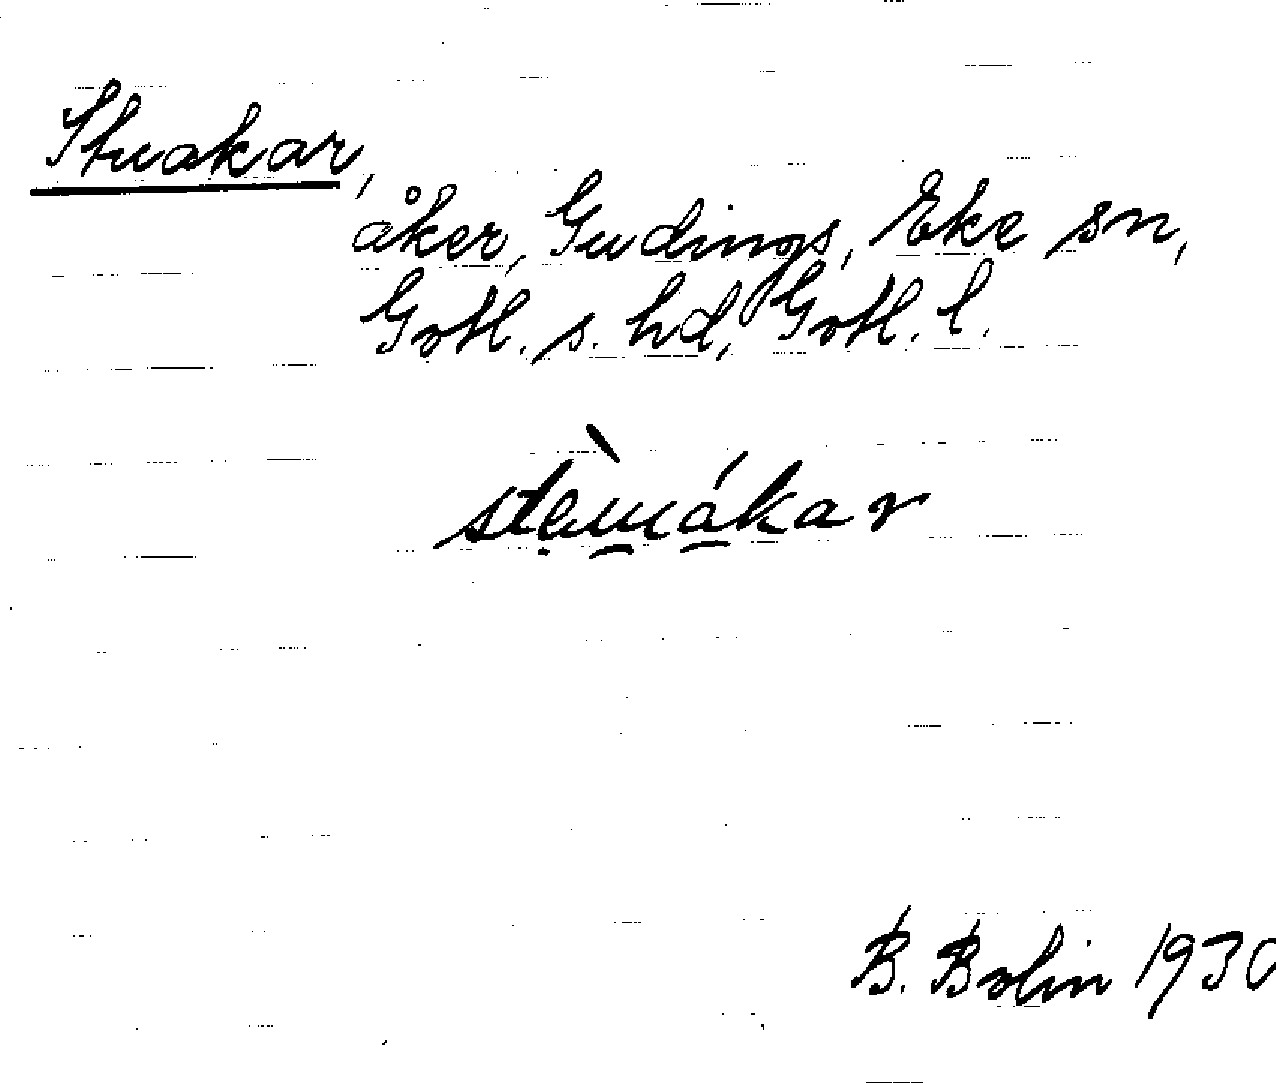 Stuakar,
åker, Gudings, Eke sn,
Gotl. s. hd, Gotl. l.
B. Bolin 1930